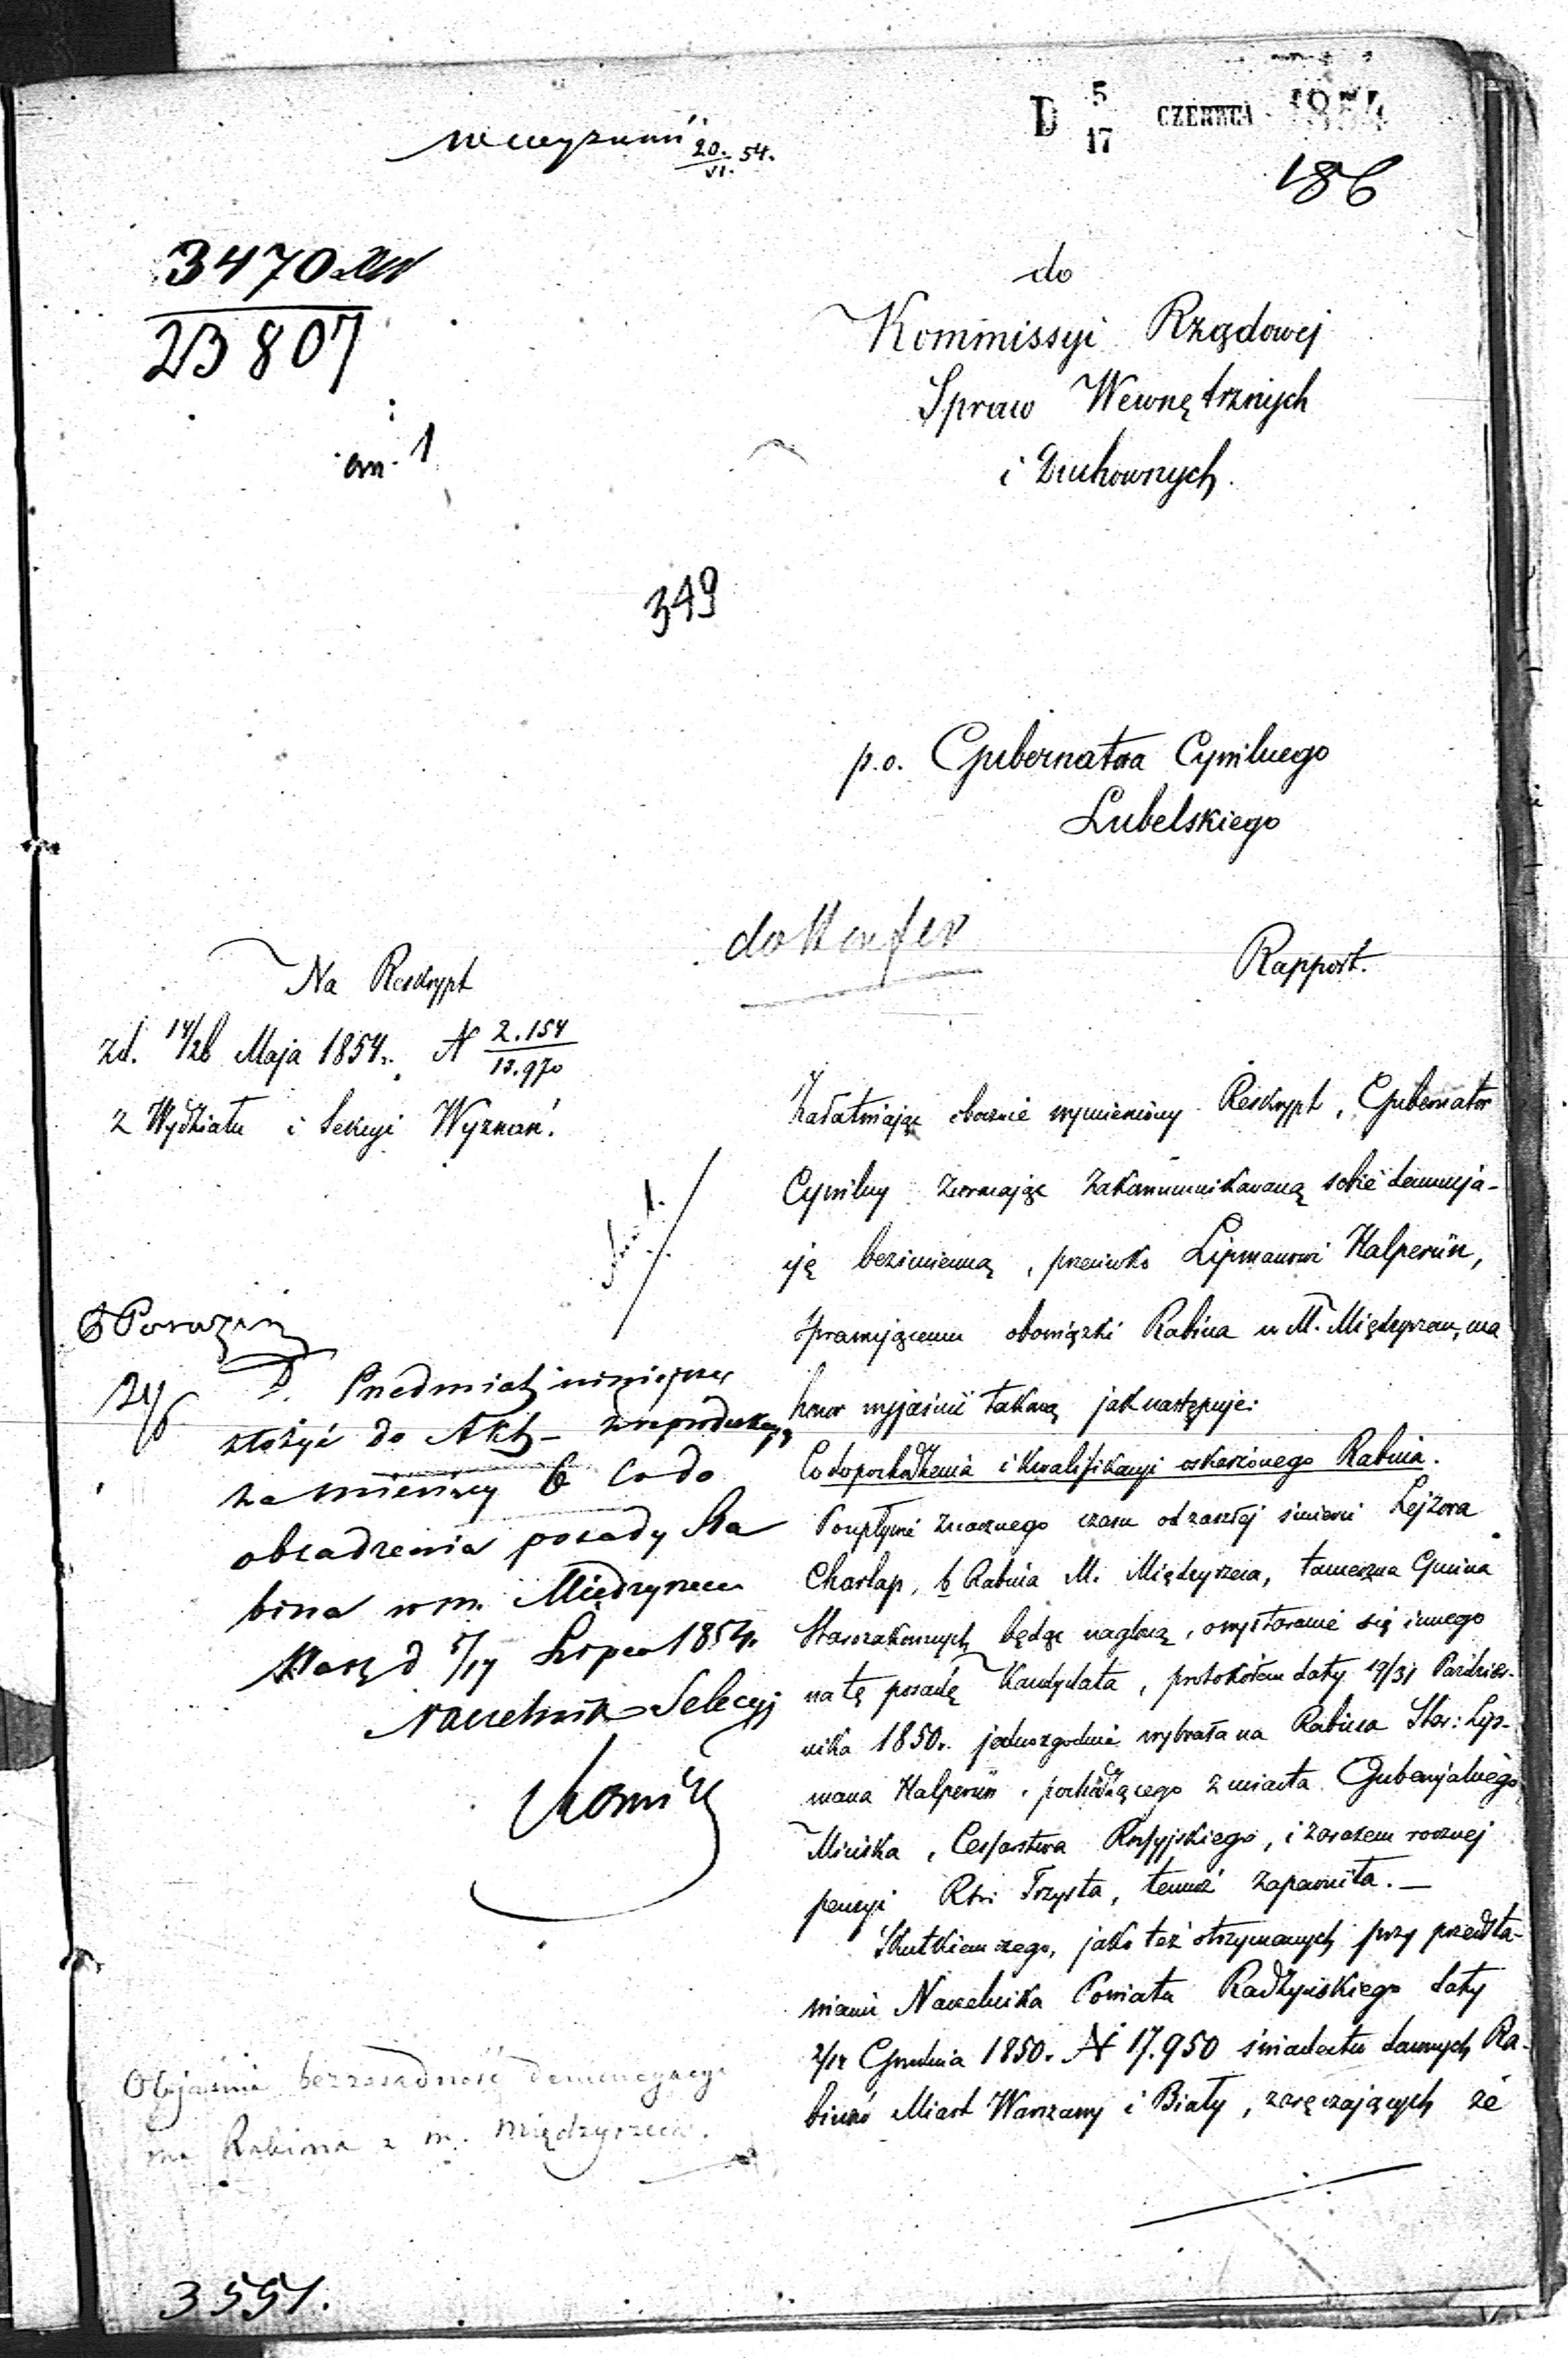 D 5/17 CZERWCA 1854
20./VI. 54.
186
3470
23807
an. 1
do
Kommissyi Rządowej
Spraw Wewnętrznych
i Duchownych.
349
p.o. Gubernatora Cywilnego
Lubelskiego
Rapport.
Na Reskrypt
zd. 14/26 Maja 1854r. N 2.154/13.970
z Wydziału i Sekcyi Wyznań.
Załatwiając obocznie wymieniony Reskrypt, Gubernator
Cywilny zwracając zakommunikowaną sobie denuncja-
cję bezimienną, przeciwko Lipmanowi Halperin,
sprawującemu obowiązki Rabina w M. Międzyrzecu, ma
honor wyjaśnić takową jak następuje:
Co do pochodzenia i kwalifikacyi oskarżonego Rabina.
Po upływie znacznego czasu od zaszłej śmierci Lejzora
Charłap, b Rabina M. Międzyrzeca, tameczna Gmina
Starozakonnych będąc naglącą, o wystaranie się innego
na tę posadę Kandydata, protokółem daty 19/31 Paździer-
nika 1850r. jednozgodnie wybrała na Rabina Star: Lip-
mana Halperin, pochodzącego z miasta Gubernjalnego
Mińska, Cesarstwa Rossyjskiego, i zarazem rocznej
pensyi Rsr. Trzysta, temuż zapewniła. —
Skutkiem czego, jako też otrzymanych przy przedsta-
wieniu Naczelnika Powiatu Radzyńskiego daty
2/14 Grudnia 1850r. N 17.950 świadectw dawnych Ra-
binów Miast Warszawy i Biały, zaręczających że
24/6
D. Przedmiot niniejszy
złożyć do Akt –
za miesięcy 6 co do
obsadzenia posady Ra
bina w m. Międzyrzecu
Warsz d 5/17 Lipca 1854r.
Naczelnik Sekcyj
Objaśnia bezzasadność denuncyacyi
na Rabina z m. Międzyrzeca.
3551.